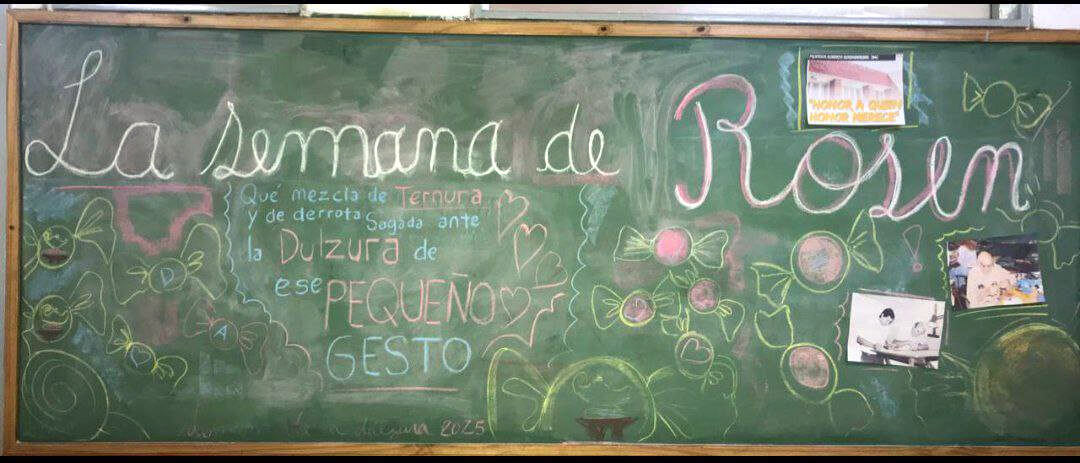 La semana de Rosen
"HONOR A QUIEN
HONOR MERECE"
Qué mezcla de Ternura
y de derrota Sagada ante
la Dulzura de
ese PEQUEÑO
GESTO
D
A
2025